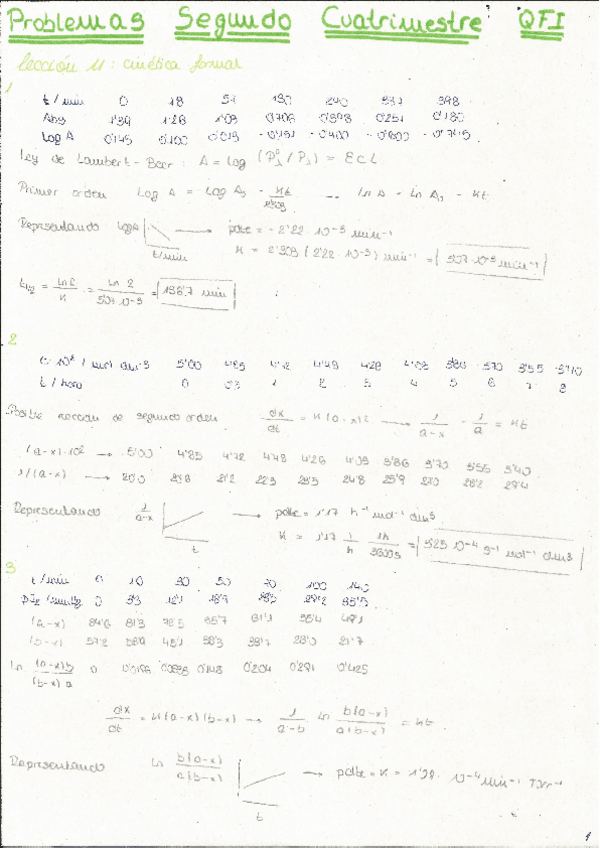 Problemas Segundo Cuatrimestre QFI
Lección 11: cinética formal
1
t/min 0 18 57 130 240 337 398
Abs 1'39 1'26 1'03 0'706 0'398 0'251 0'180
Log A 0'145 0'100 0'013 -0'151 -0'400 -0'600 -0'745
Ley de Lambert-Beer: A = Log (P°λ/Pλ) = ε c L
Primer orden Log A = Log A₀ - Kt/2'303 → ln A = Ln A₀ - Kt
Representando Log A t/min → pdte = -2'22·10⁻³ min⁻¹
K = 2'303 (2'22·10⁻³) min⁻¹ = 5'07·10⁻³ min⁻¹
t₁/₂ = Ln 2/K = Ln 2/5'07·10⁻³ = 136'7 min
2
c·10² / mol dm⁻³ 5'00 4'85 4'72 4'48 4'26 4'03 3'86 3'70 3'55 3'40
t/hora 0 0'5 1 2 3 4 5 6 7 8
Posible reacción de segundo orden dx/dt = K(a-x)² → 1/a-x - 1/a = Kt
(a-x)·10² → 5'00 4'85 4'72 4'48 4'26 4'03 3'86 3'70 3'55 3'40
1/(a-x) → 20'0 20'6 21'2 22'3 23'5 24'8 25'9 27'0 28'2 29'4
Representando 1/a-x t → pdte = 1'17 h⁻¹ mol⁻¹ dm³
K = 1'17 1/h 1h/3600s = 3'25 10⁻⁴ s⁻¹ mol⁻¹ dm³
3
t/min 0 10 30 50 70 100 140
0 3'3 12'1 18'9 29'2 35'5
(a-x) 84'6 81'3 72'5 65'7 61'1 55'4 49'1
(b-x) 57'2 53'9 45'1 38'3 33'7 28'0 21'7
Ln (a-x)b/(b-x)a 0 0'148 0'204 0'291 0'425
dx/dt = K(a-x)(b-x) → 1/a-b Ln b(a-x)/a(b-x) = Kt
Representando Ln b(a-x)/a(b-x) t → pdte = K = 10⁻⁴ min⁻¹ Torr⁻¹
1